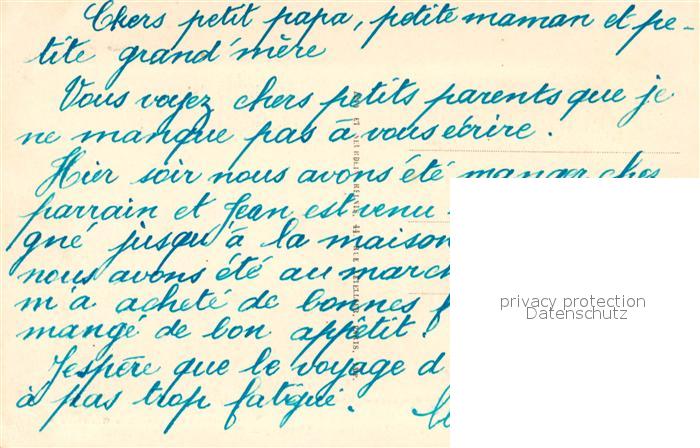 Chers petit papa, petite maman et pe-
tite grand'mère
Vous voyez chers petits parents que je
ne manque pas à vous écrire.
Hier soir nous avons été manger chez
parrain et Jean est venu
gné jusqu'à la maison
nous avons été au march
m'a acheté de bonnes
mangé de bon appétit.
J'espère que le voyage d
à pas trop fatigué.
privacy protection
Datenschutz